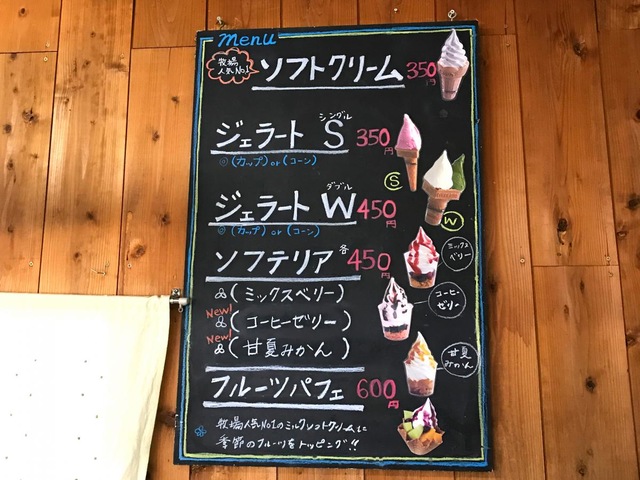 menu
牧場
人気No.1
ソフトクリーム 350円
シングル
ジェラート S 350円
◎(カップ)or(コーン)
S
ダブル
ジェラート W 450円
◎(カップ)or(コーン)
W
ソフテリア 各450円
(ミックスベリー)
ミックス
ベリー
New!
(コーヒーゼリー)
コーヒー
ゼリー
New!
(甘夏みかん)
甘夏
みかん
フルーツパフェ 600円
牧場人気No1のミルクソフトクリームに
季節のフルーツをトッピング!!